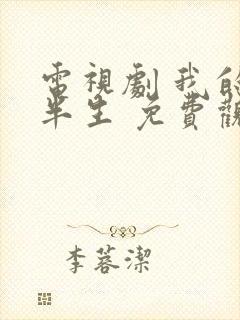 電視劇我的
半生 免費觀
李蓉潔